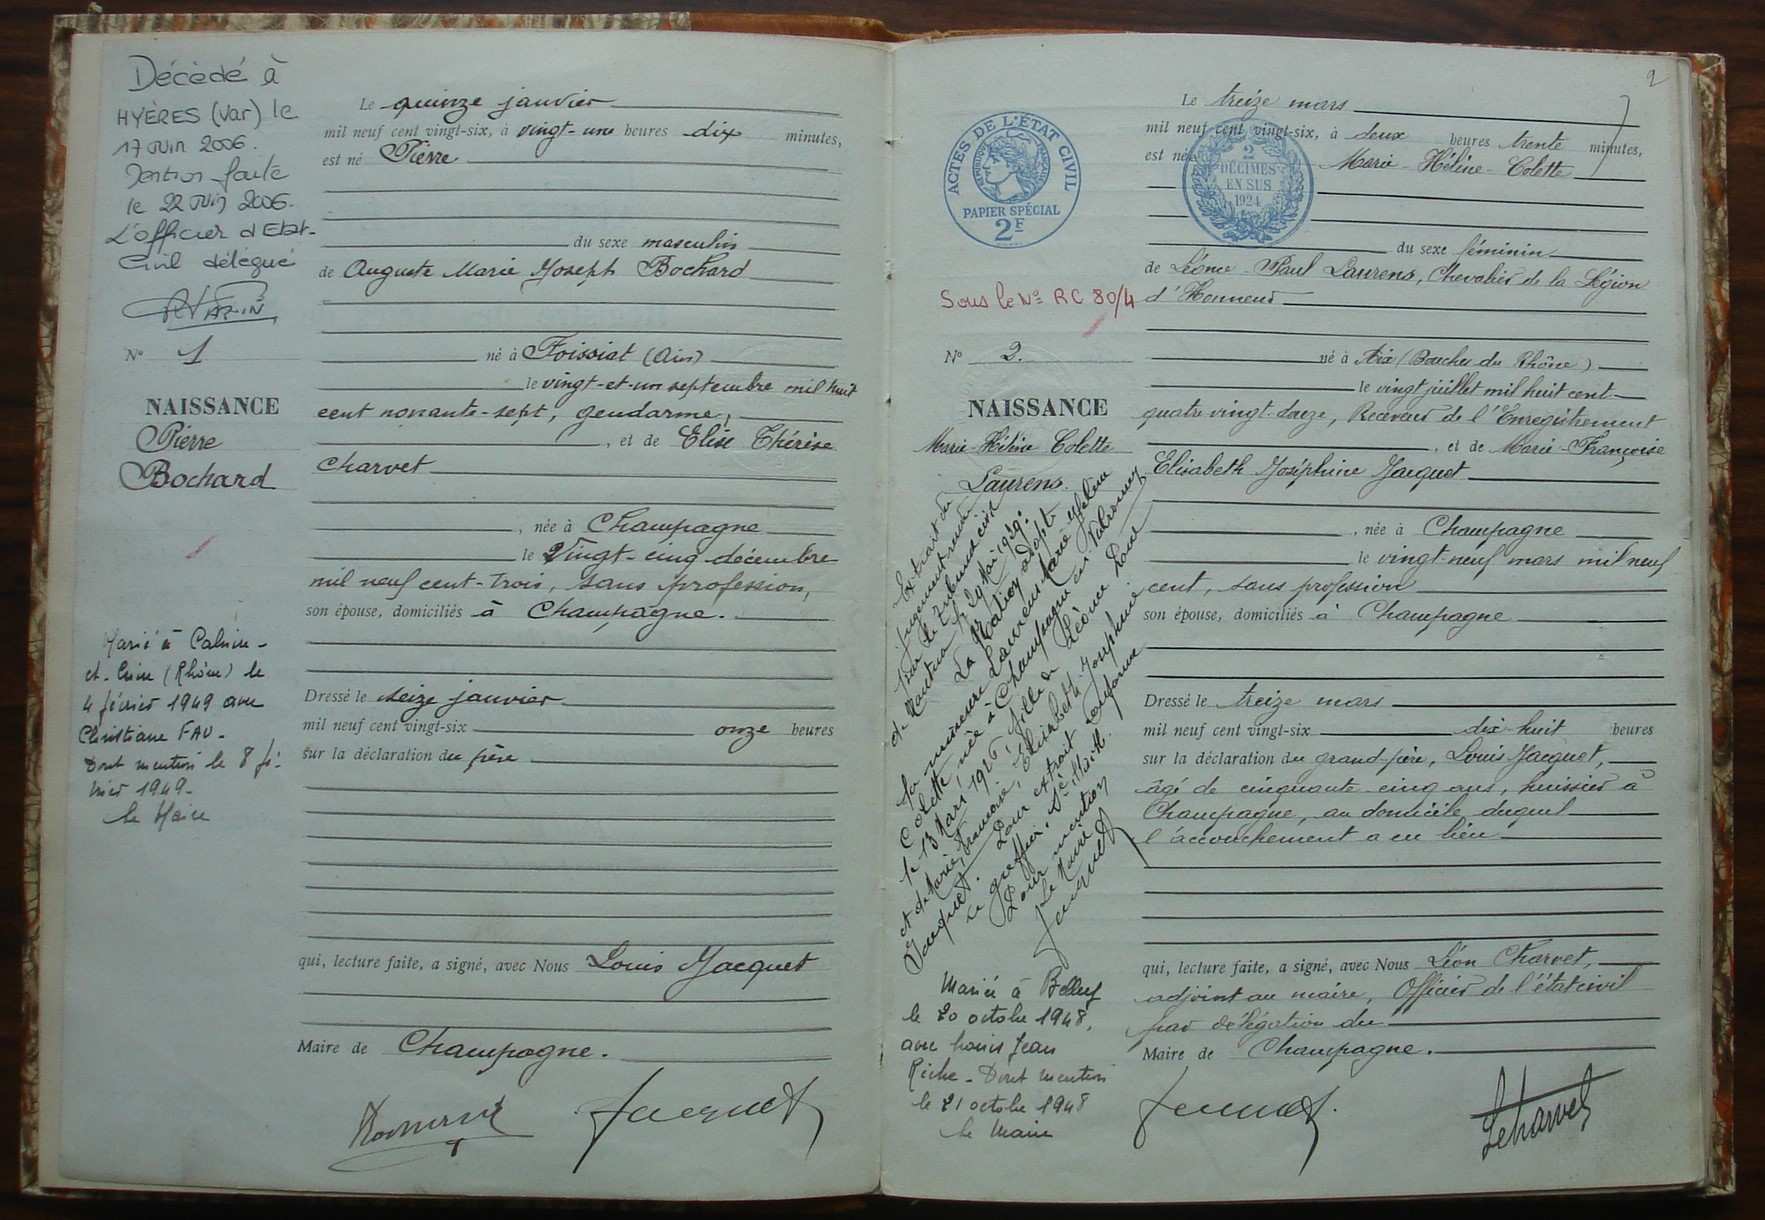 Décédé à
HYÈRES (Var) le
17 Juin 2006.
Mention faite
le 22 Juin 2006.
L'officier d'Etat-
Civil délégué
N° 1
NAISSANCE
Pierre
Bochard
Marié à Caluire-
et-Cuire (Rhône) le
4 février 1949 avec
Christiane FAU-
Dont mention le 8 fé-
vrier 1949-
le Maire
Le quinze janvier
mil neuf cent vingt-six, à vingt-une heures dix minutes,
est né Pierre
du sexe masculin
de Auguste Marie Joseph Bochard
né à Foissiat (Ain)
le vingt-et-un septembre mil huit
cent nonante-sept, gendarme,
, et de Elise Thérèse
Charvet
, née à Champagne
le Vingt-cinq décembre
mil neuf cent-trois, sans profession,
son épouse, domiciliés à Champagne.
Dressé le seize janvier
mil neuf cent vingt-six onze heures
sur la déclaration du père
qui, lecture faite, a signé, avec Nous Louis Jacquet
Maire de Champagne.
Jacquet
2
ACTES DE L'ÉTAT CIVIL
PAPIER SPÉCIAL
2F
2
DÉCIMES
EN SUS
1924
Sous le N° RC 80/4
N° 2.
NAISSANCE
Marie-Hélène Colette
Laurens.
Extrait du
jugement rendu
par le tribunal civil
de Nantua le 29 Mai 1939:
La Nation adopte
la mineure Laurens Marie Hélène
Colette, née à Champagne en Valromey
le 13 Mars 1926, fille de Léonce Paul
et de Marie Françoise, Elisabeth Josephine
Jacquet. Pour extrait conforme
le greffier.
Pour mention
Le Maire
Jacquet
Mariée à Belley
le 20 octobre 1948,
avec Louis Jean
Riche - Dont mention
le 21 octobre 1948
le Maire
Le treize mars
mil neuf cent vingt-six, à deux heures trente minutes,
est née Marie-Hélène-Colette
du sexe féminin
de Léonce-Paul Laurens, Chevalier de la Légion
d'Honneur
né à Aix (Bouches du Rhône)
le vingt juillet mil huit cent
quatre vingt-douze, Receveur de l'Enregistrement
, et de Marie-Françoise
Elisabeth Joséphine Jacquet
, née à Champagne
le vingt-neuf mars mil neuf
cent, sans profession
son épouse, domiciliés à Champagne
Dressé le treize mars
mil neuf cent vingt-six dix-huit heures
sur la déclaration du grand-père, Louis Jacquet,
âgé de cinquante-cinq ans, huissier à
Champagne, au domicile duquel
l'accouchement a eu lieu
qui, lecture faite, a signé, avec Nous Léon Charvet,
adjoint au maire, Officier de l'état civil
par délégation du
Maire de Champagne.